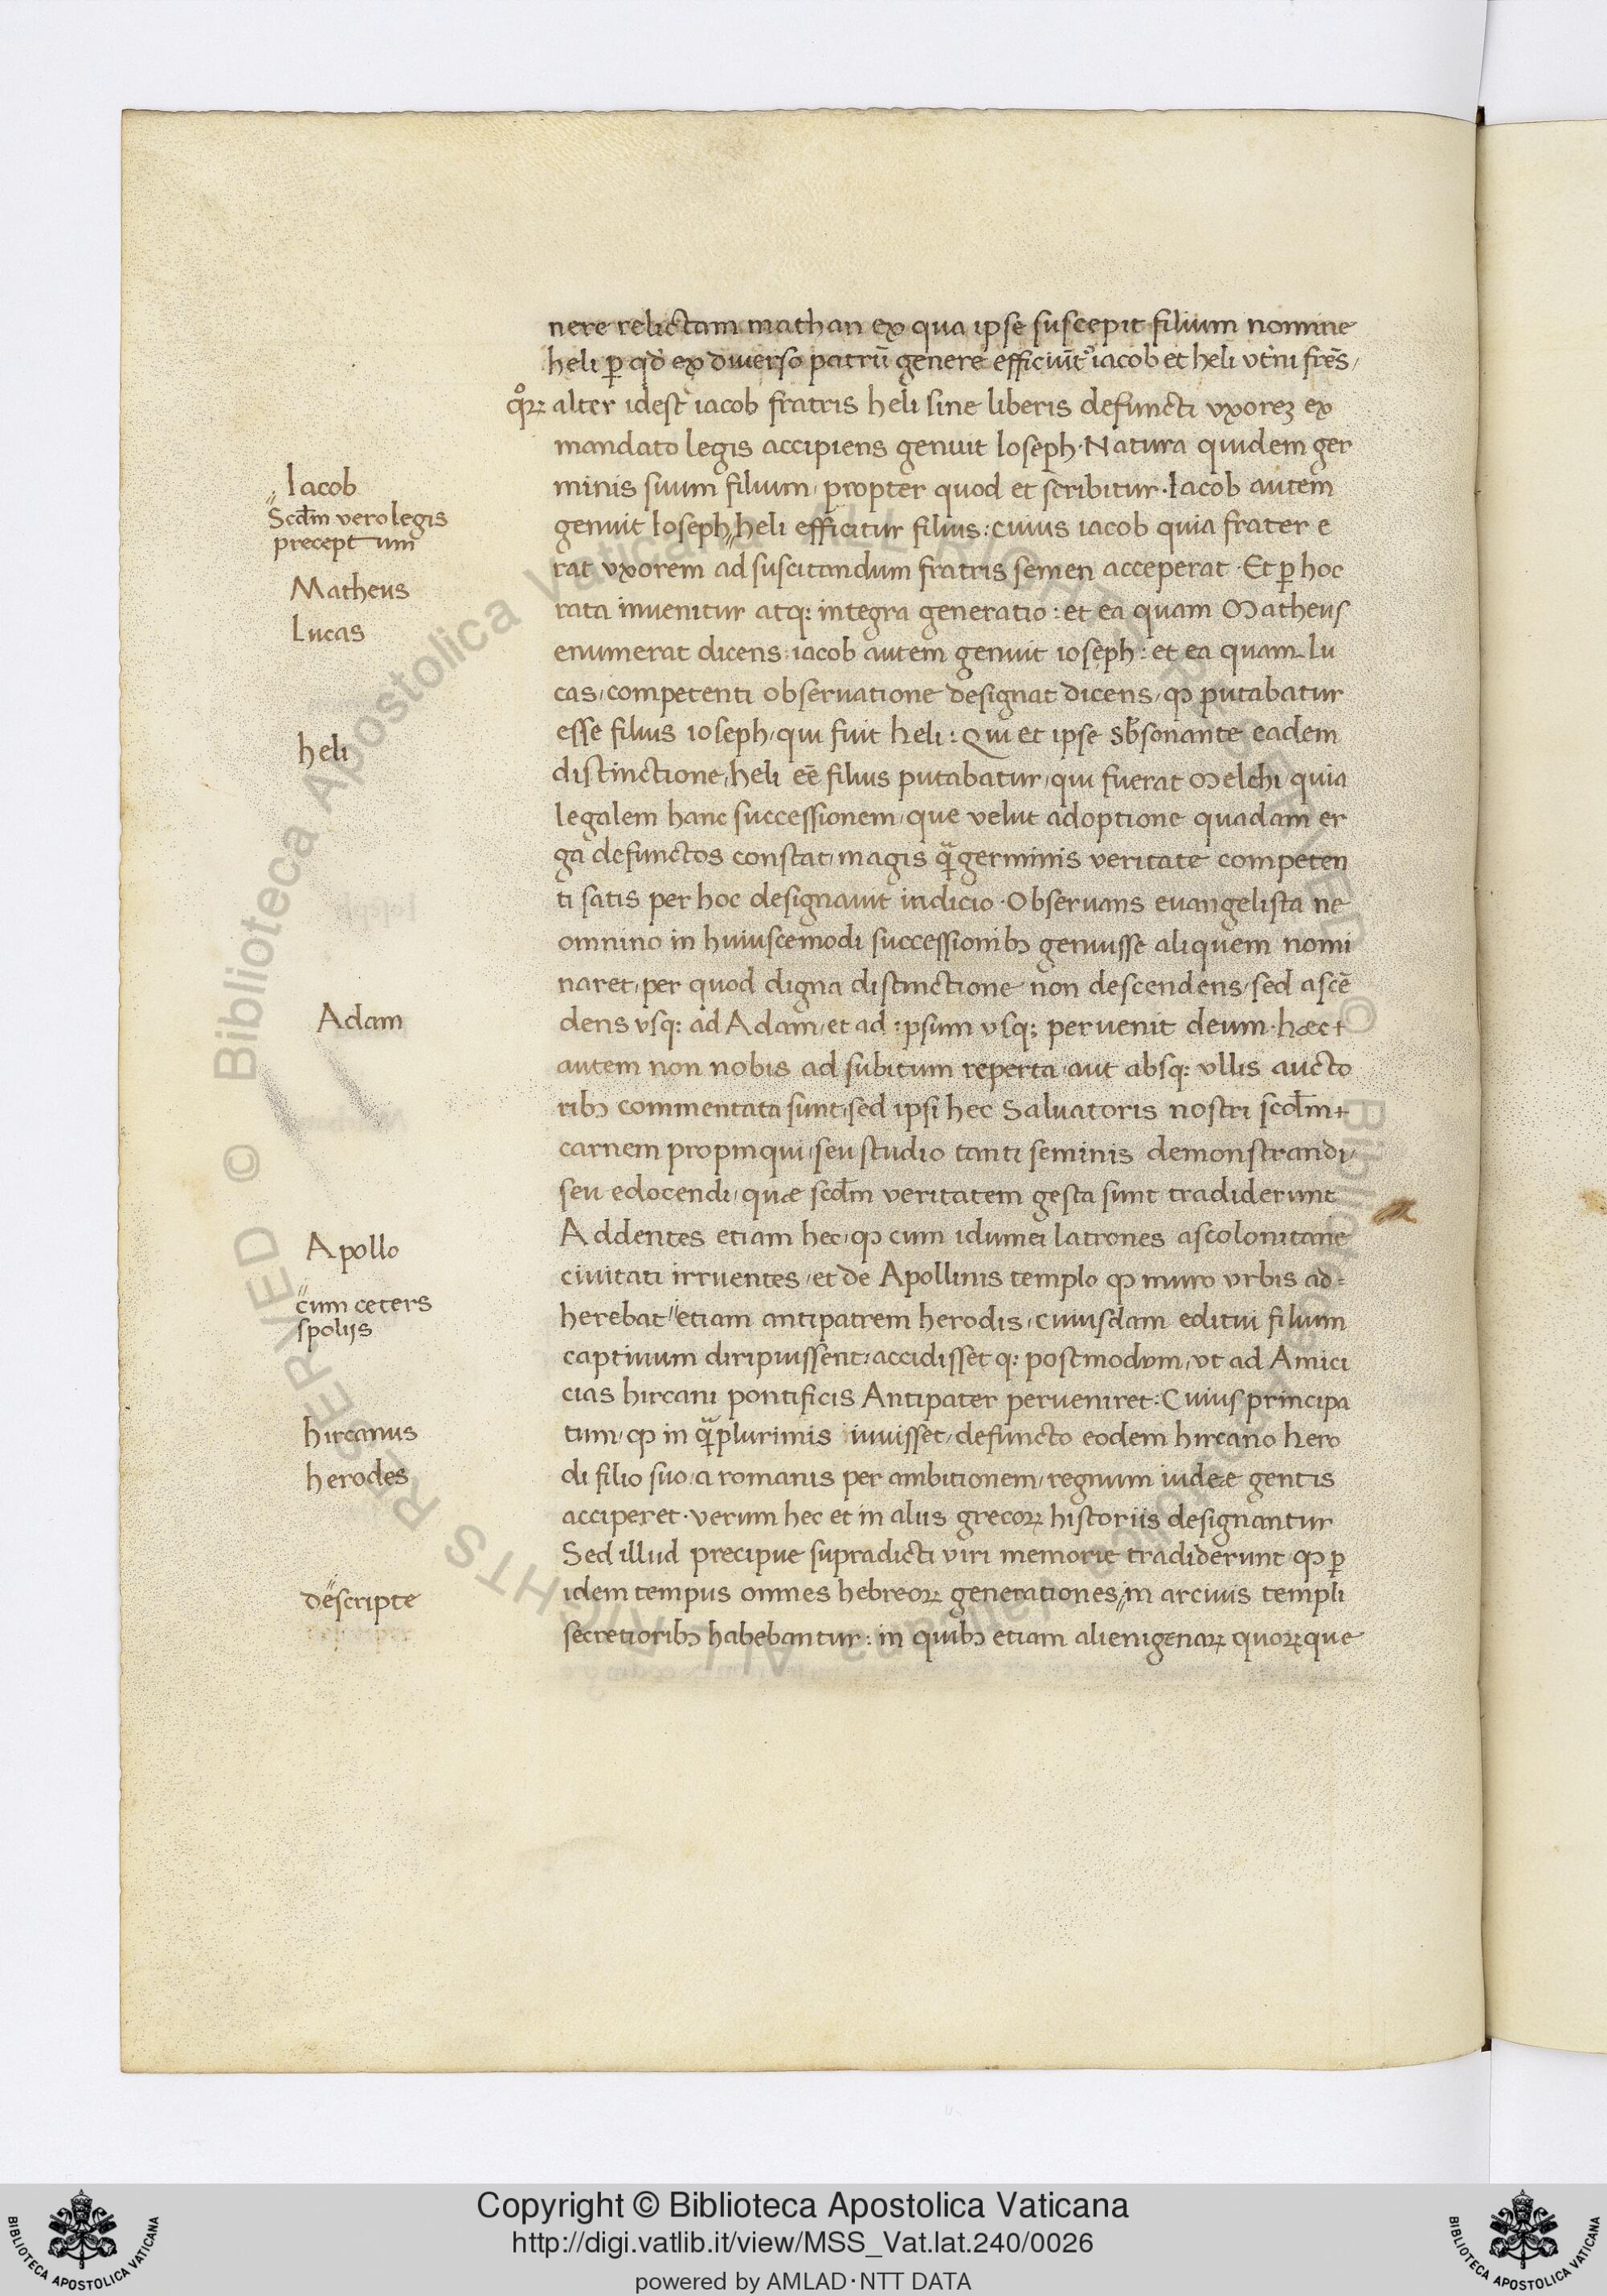 nere relictam mathan ex qua ipse suscepit filium nomine
heli ꝑ qđ ex diuerso patrū genere efficiūt᷒ iacob et heli vt̓ni fr̄es,
qͦꝝ alter idest iacob fratris heli sine liberis defuncti vxoreꝫ ex
mandato legis accipiens genuit Ioseph. Natura quidem ger
Iacob
minis suum filium, propter quod et scribitur. Iacob autem
Scd̄m vero legis
preceptum
genuit Ioseph,, heli efficitur filius: cuius iacob quia frater e
rat vxorem ad suscitandum fratris semen acceperat. Et ꝑ hoc
Matheus
rata inuenitur atq: integra generatio: et ea quam Matheus
Lucas
enumerat dicens: iacob autem genuit ioseph: et ea quam lu
cas, competenti obseruatione designat dicens, ꝙ putabatur
esse filius ioseph, qui fuit heli: Qui et ipse sb̄sonante eadem
heli
distinctione, heli eē filius putabatur, qui fuerat Melchi quia
legalem hanc successionem, que velut adoptione quadam er
ga defunctos constat, magis qᷓ germinis veritate competen
ti satis per hoc designauit indicio. Obseruans euangelista ne
omnino in huiuscemodi successionibꝫ genuisse aliquem nomi
naret, per quod digna distinctione non descendens, sed ascē
Adam
dens vsq: ad Adam, et ad ipsum vsq: peruenit deum. hæc
autem non nobis ad subitum reperta, aut absq: vllis aucto
ribꝫ commentata sunt, sed ipsi hec Saluatoris nostri scd̄m
carnem propinqui, seu studio tanti seminis demonstrandi,
seu edocendi, quæ scd̄m veritatem gesta sunt tradiderunt
Addentes etiam hec, ꝙ cum idumei latrones ascolonitane
Apollo
ciuitati irruentes, et de Apollinis templo ꝙ muro vrbis ad=
cum ceters
spolijs
herebat,, etiam antipatrem herodis, cuiusdam editui filium
captiuum diripuissent: accidisset q: postmodum, vt ad Amici
cias hircani pontificis Antipater perueniret: Cuius principa
hircanus
tum, ꝙ in qᷓplurimis iuuisset, defuncto eodem hircano hero
herodes
di filio suo, a romanis per ambitionem, regnum iudeæ gentis
acciperet. verum hec et in aliis grecoꝝ historiis designantur
Sed illud precipue supradicti viri memorie tradiderunt ꝙ ꝑ
descripte
idem tempus omnes hebreoꝝ generationes,, in arciuis templi
secretioribꝫ habebantur: in quibꝫ etiam alienigenaꝝ quoꝝque
Copyright © Biblioteca Apostolica Vaticana
http://digi.vatlib.it/view/MSS_Vat.lat.240/0026
powered by AMLAD·NTT DATA
BIBLIOTECA APOSTOLICA VATICANA
BIBLIOTECA APOSTOLICA VATICANA
© Biblioteca Apostolica Vaticana ALL RIGHTS RESERVED © Biblioteca Apostolica Vaticana ALL RIGHTS RESERVED